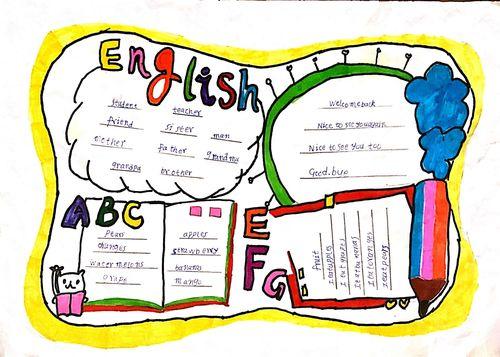 English
student teacher
friend sister man
mother father grandma
grandpa brother
Welcome back
Nice to see you again
Nice to see you too
Good. bye
ABC
pear
oranges
watermelons
grape
apples
strawberry
bananas
mango
EFG
fruit
I eat apples
I eat grapes
I eat bananas
I eat oranges
I eat pears